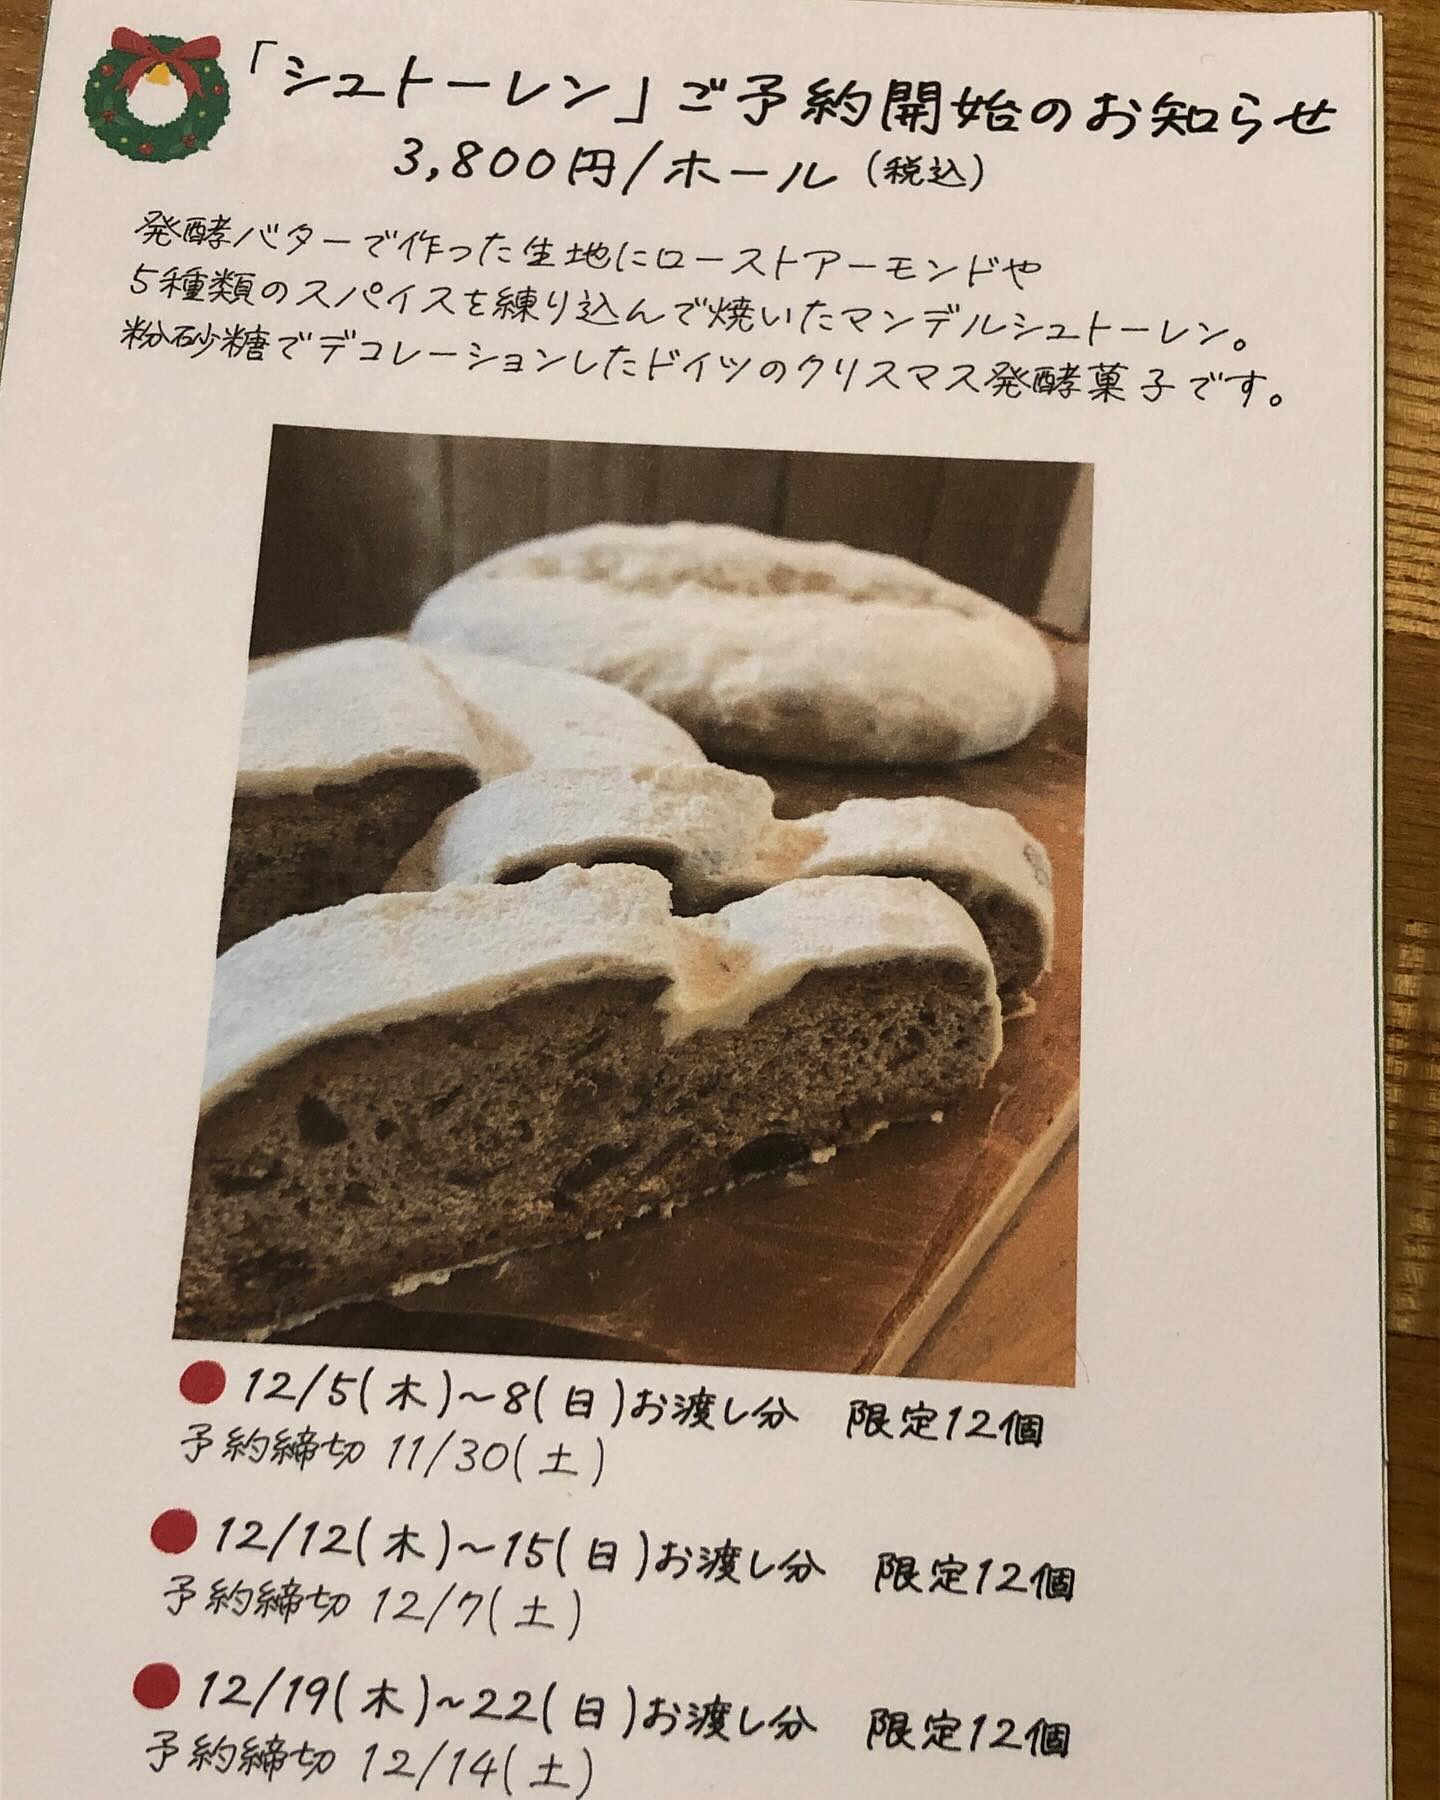 「シュトーレン」ご予約開始のお知らせ
3,800円/ホール（税込）
発酵バターで作った生地にローストアーモンドや
5種類のスパイスを練り込んで焼いたマンデルシュトーレン。
粉砂糖でデコレーションしたドイツのクリスマス発酵菓子です。
●12/5(木)~8(日)お渡し分　限定12個
予約締切 11/30(土)
●12/12(木)~15(日)お渡し分　限定12個
予約締切 12/7(土)
●12/19(木)~22(日)お渡し分　限定12個
予約締切 12/14(土)